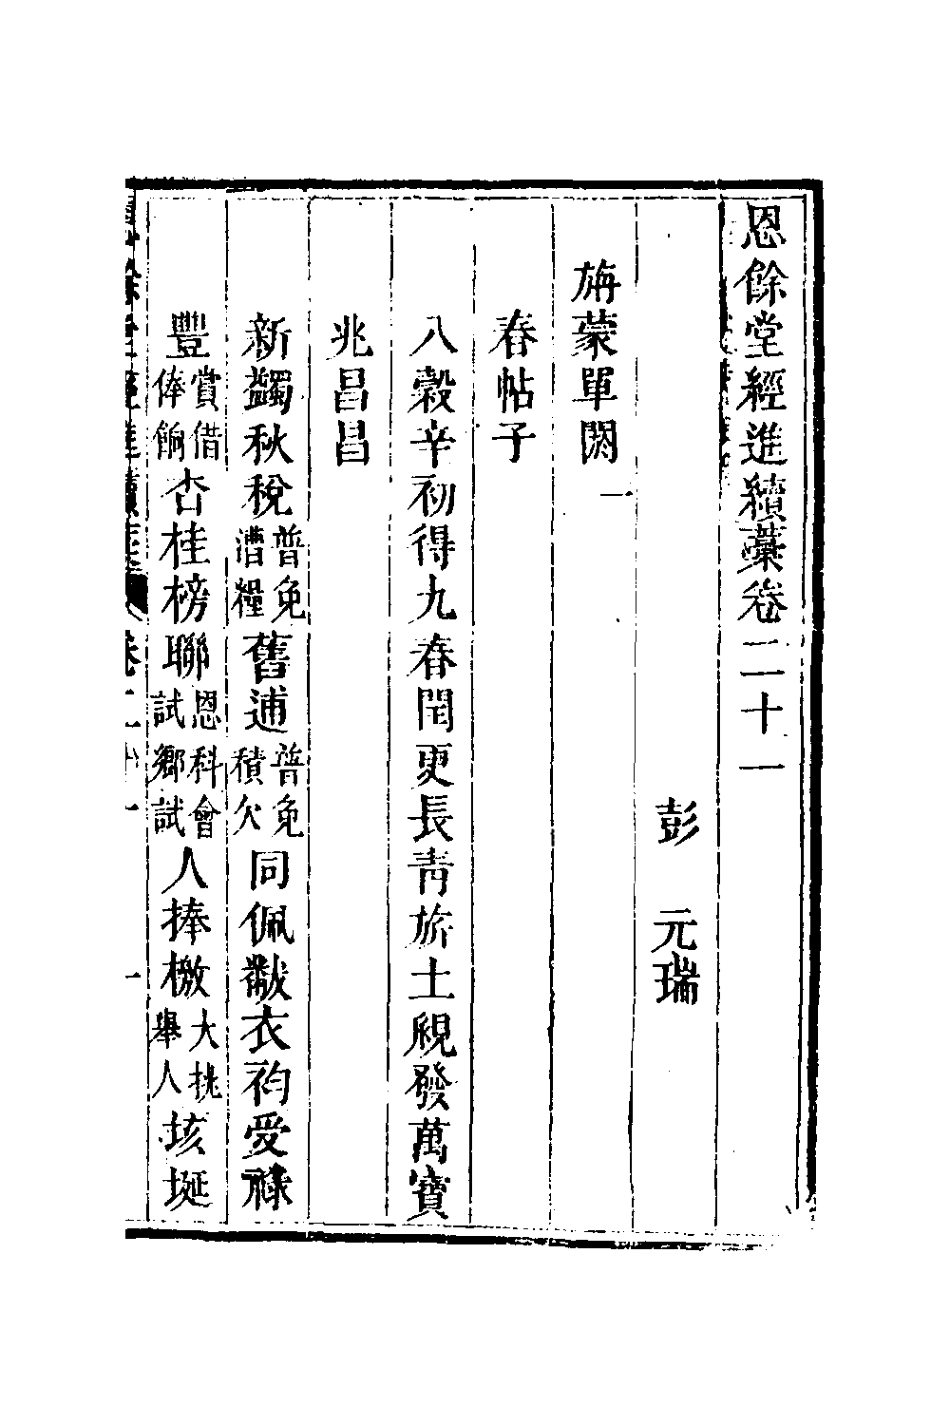 恩餘堂經進續藁卷二十一
彭　元瑞
旃蒙單閼一
春帖子
八穀辛初得九春閏更長青旂土覛發萬寶
兆昌昌
新蠲秋稅普免漕糧舊逋普免積欠同佩黻衣袀受祿
豐賞借俸餉杏桂榜聯恩科會試鄉試人捧檄大挑舉人垓埏
卷二十一　一